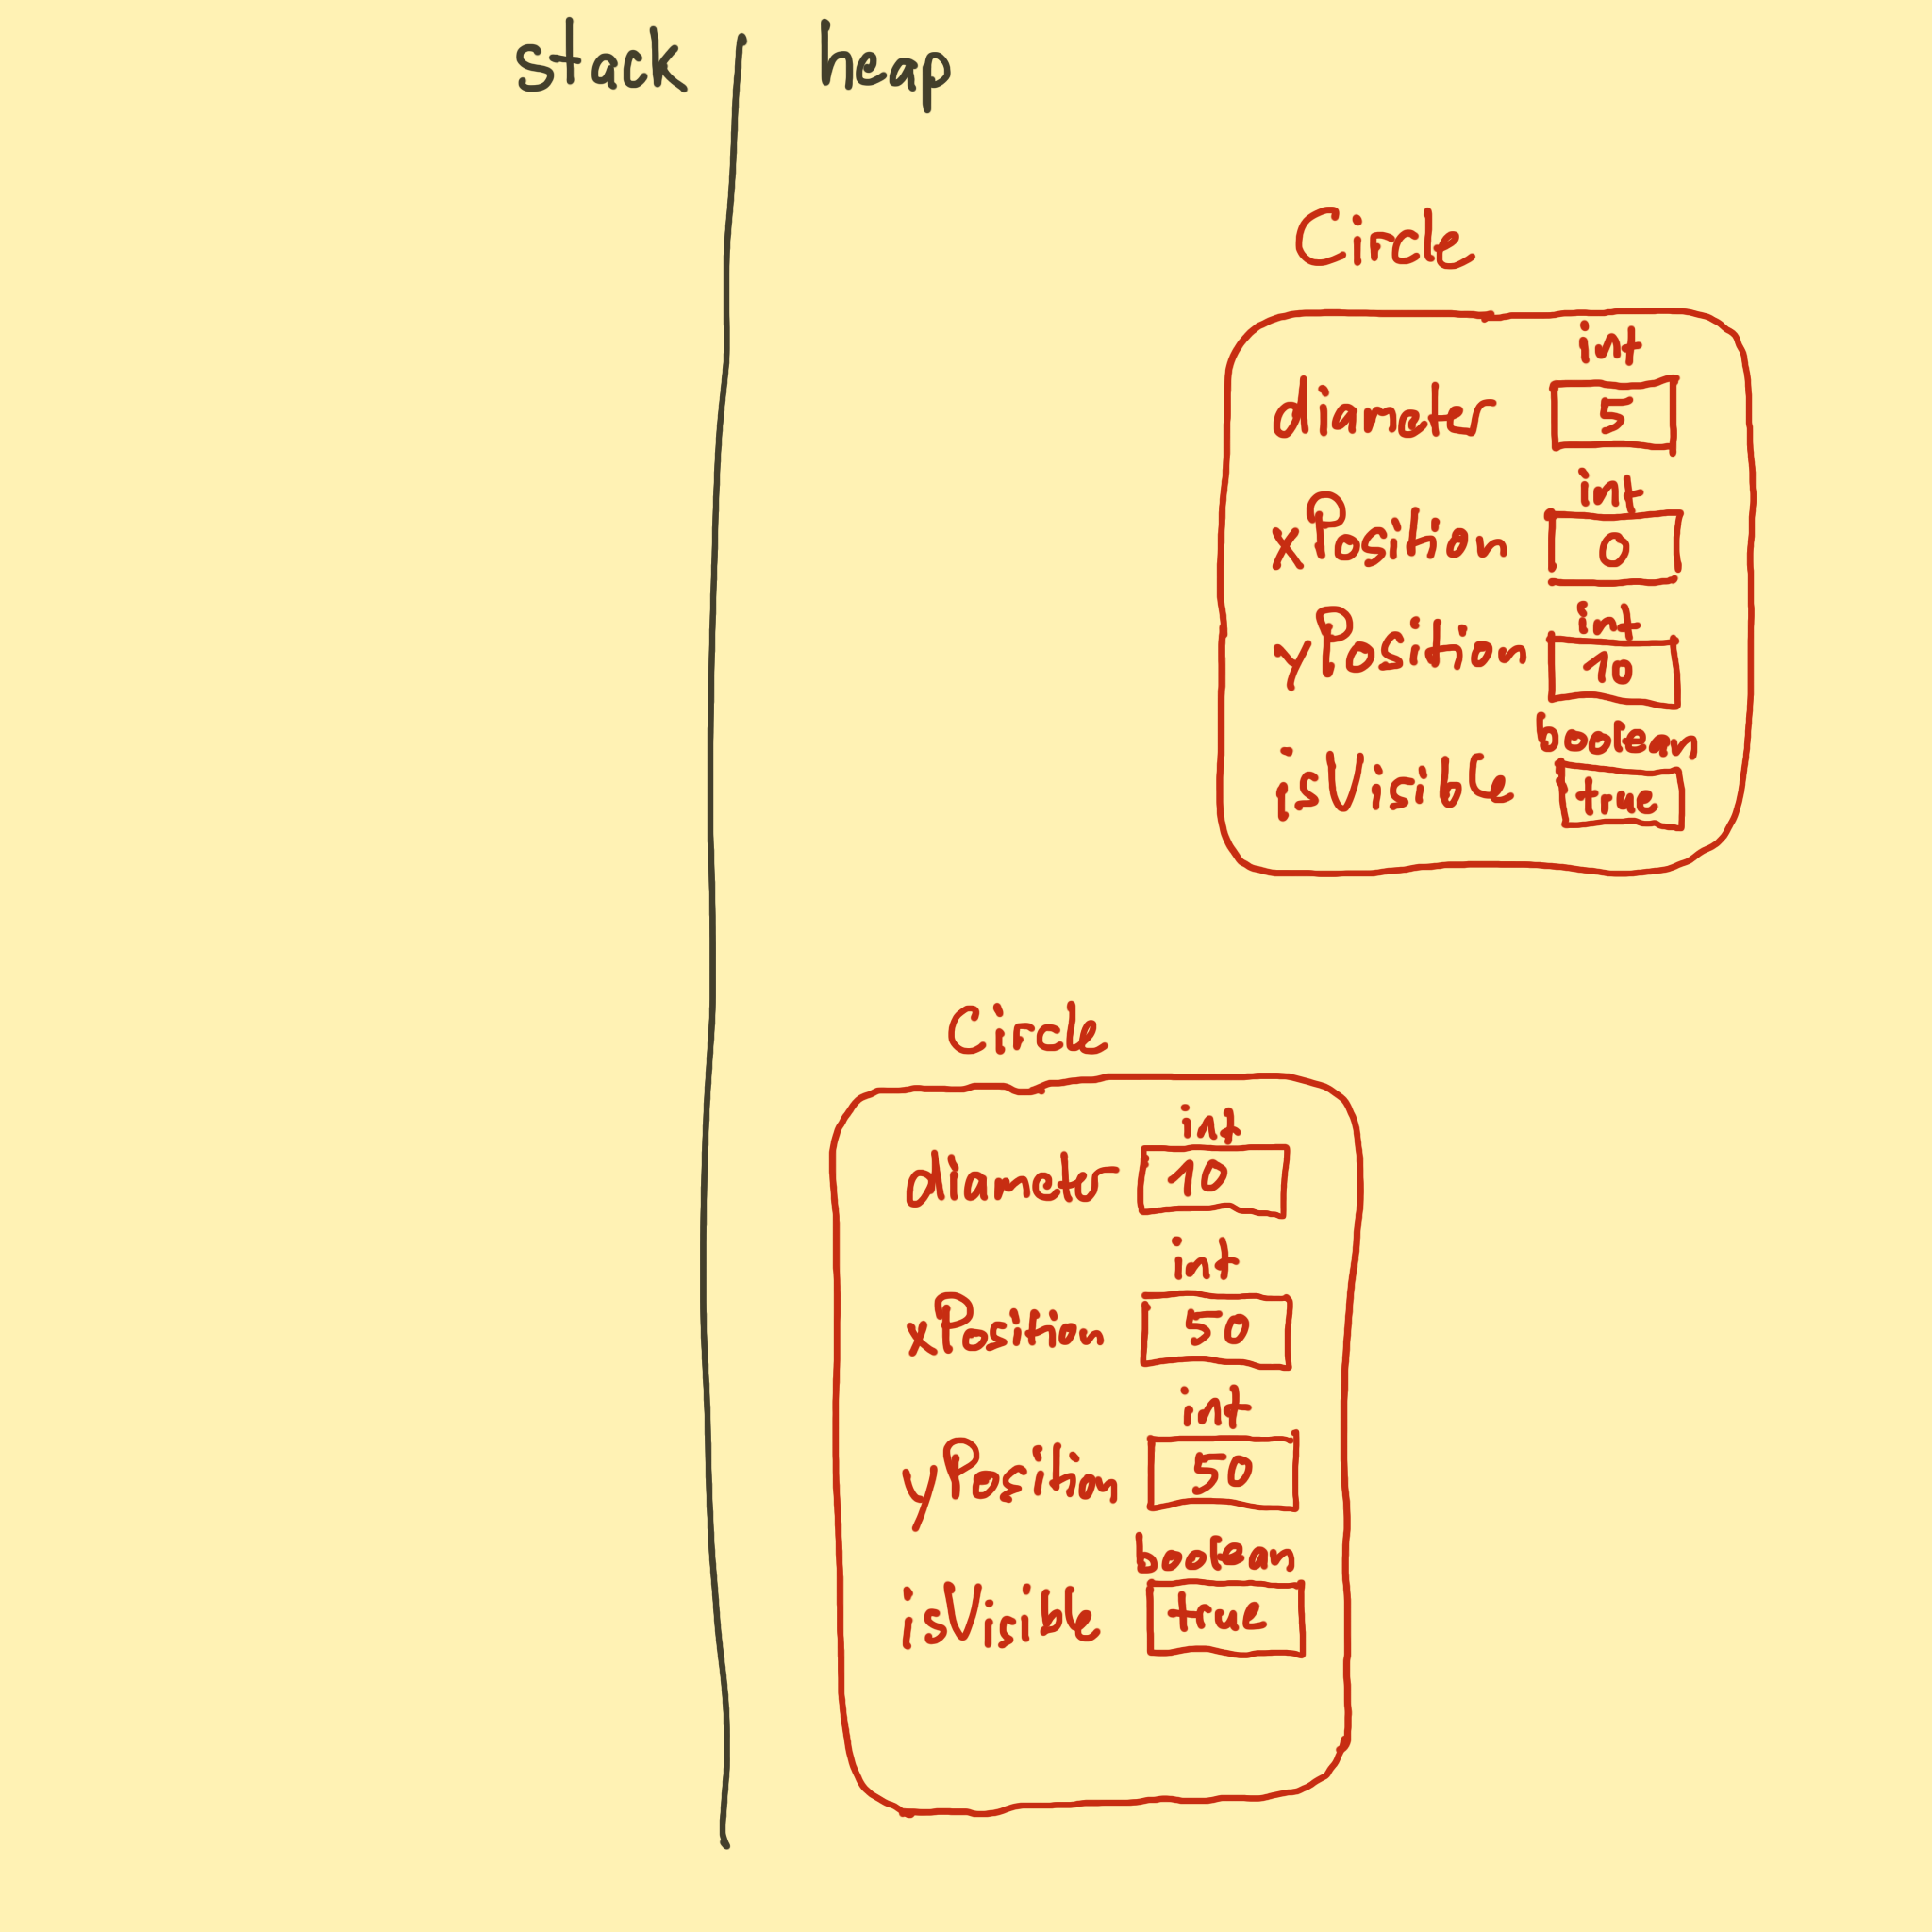 stack heap
Circle
int
diameter 5
int
xPosition 0
int
yPosition 10
boolean
isVisible true
Circle
int
diameter 10
int
xPosition 50
int
yPosition 50
boolean
isVisible true